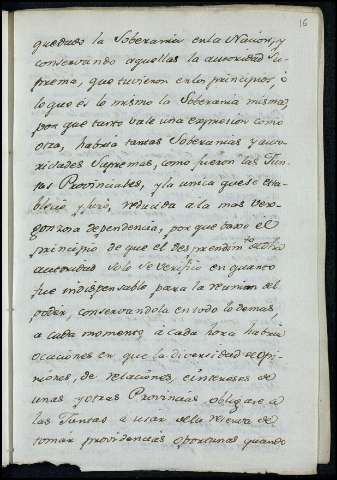 16
quedado la Soberania en la Nacion, y
conservando aquellas la autoridad Su-
prema, que tuvieron en los principios, ò
lo que es lo mismo la Soberania misma,
por que tanto vale una expresion como
otra, habria tantas Soberanias y auto-
ridades Supremas, como fueron las Jun-
tas Provinciales, y la unica que se esta-
bleciò y jurò, reducida a la mas vergon-
gonzosa dependencia, por que baxo el
principio de que el desprendim.to de la
autoridad solo se verificò en quanto
fue indispensable para la reunion del
poder, conservandola en todo lo demas,
a cada momento, a cada hora habria
ocaciones en que la diversidad de opi-
niones, de relaciones, è intereses de
unas y otras Provincias obligase a
las Juntas a usar de la reserva de
tomar providencias oportunas quando